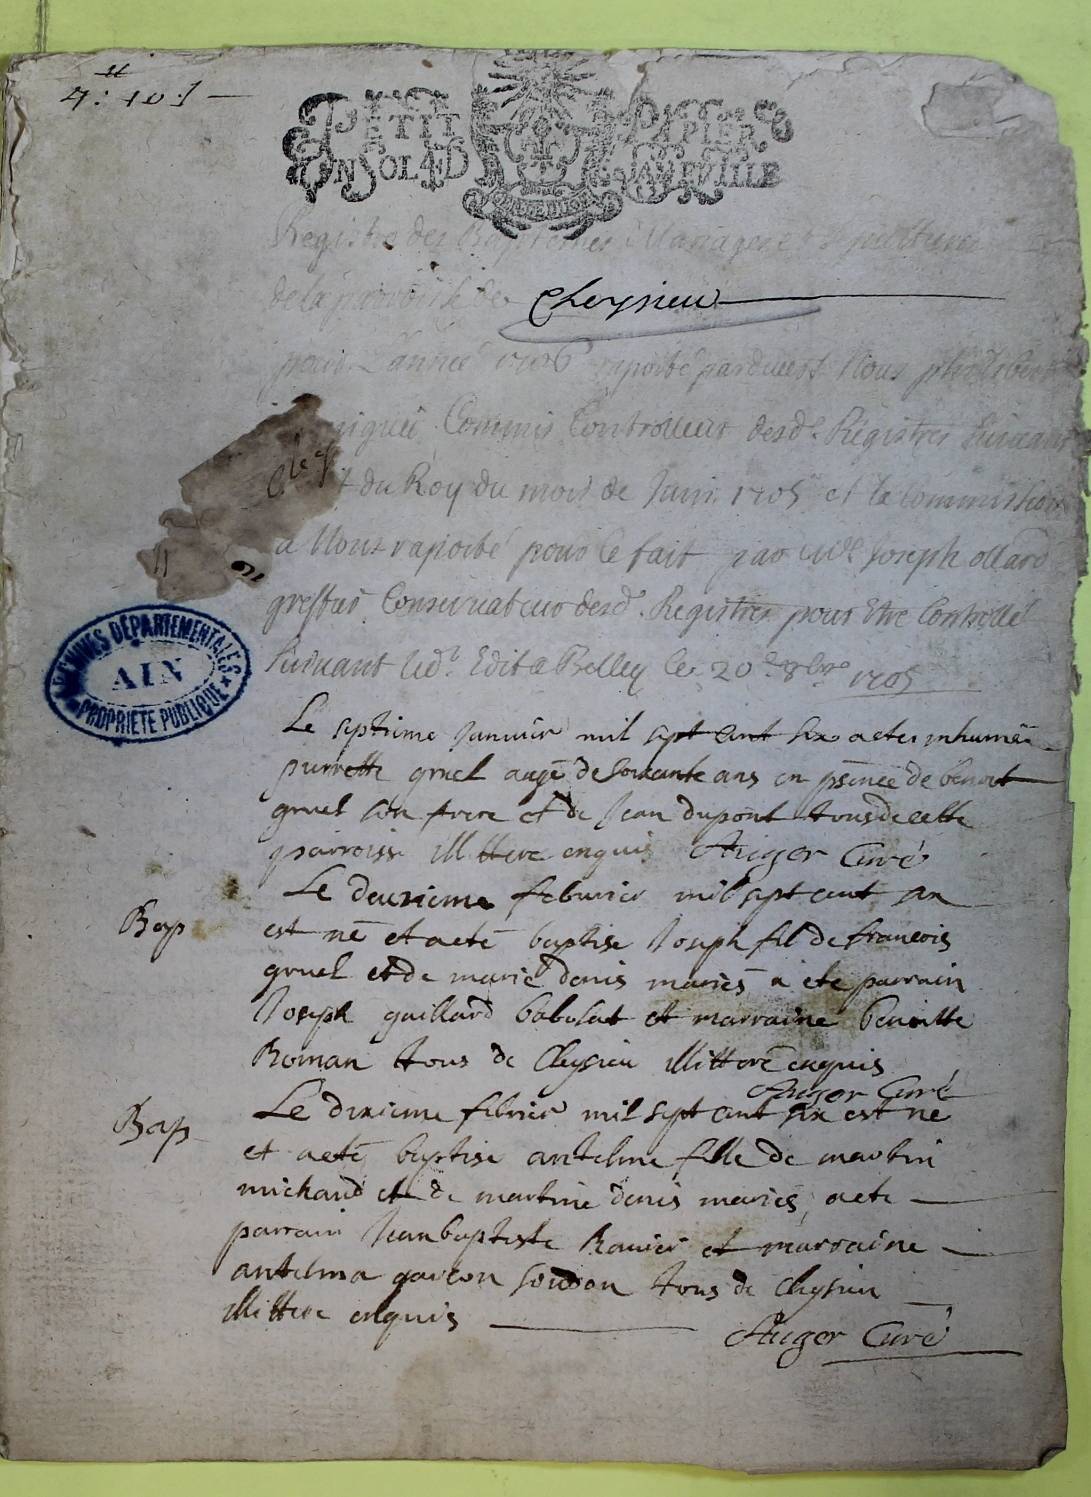 4: 10 f
PETIT PAPIER
EN SOL 4D LA FEVILLE
Registre des Baptemes Mariages et Sepultures
de la parroisse de Cheysieu
pour L'année 1706 raporté pardevant Nous philibert
Commis Controlleur desd. Registres suivant
du Roy du mois de Juin 1705 et la Commission
a Nous raporté pour le fait par Me Joseph ollard
greffier Conservateur desd. Registres pour Etre Controllé
suivant led. Edit a Belley le 20e 8bre 1705
ARCHIVES DÉPARTEMENTALES
AIN
PROPRIÉTÉ PUBLIQUE
Le septime Janvier mil sept cent six a etes inhumée
pierrette gruel augé de soixante ans en psence de benoit
gruel son frere et de Jean dupont tous de cette
parroisse illittere enquis Auger Curé
Bap
Le deuxieme februier mil sept cent six
est né et a eté baptise Joseph fil de francois
gruel et de marie denis mariés a ete parrain
Joseph guillard babolat et marraine benoitte
Roman tous de Cheysieu illitteré enquis
Auger Curé
Bap
Le dixieme febrier mil sept cent six est né
et a eté baptise antelme fille de martin
michaud et de martine denis mariés, a ete
parrain Jean baptiste Ravier et marraine
antelma garcon tous de Cheysieu
illittere enquis
Auger Curé